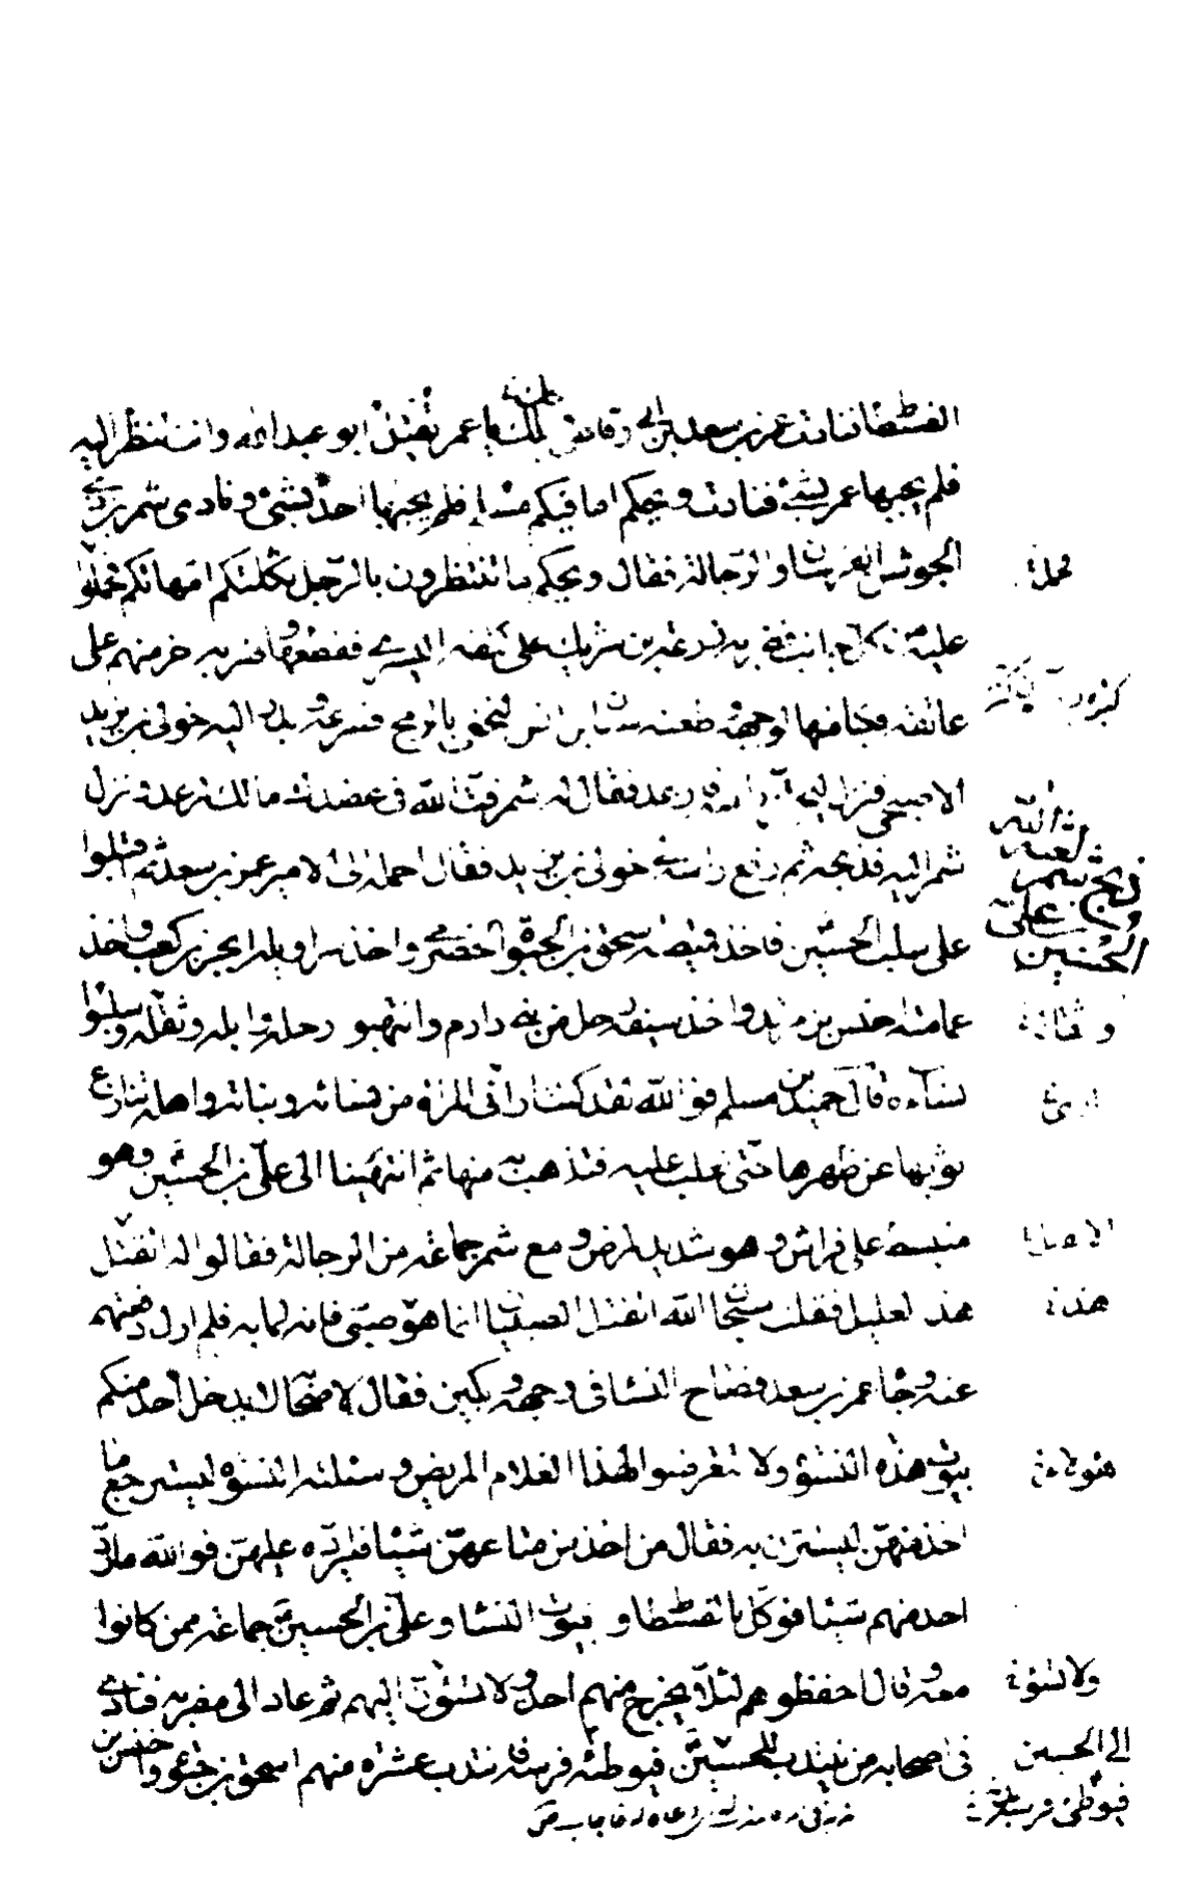 الفسطاط فنادت عمر بن سعد بن ابى وقاص ويلك يا عمر يقتل ابو عبد الله وانت تنظر اليه
فلم يجبها عمر بشئ فنادت ويحكم اما فيكم مسلم فلم يجبها احد بشئ ونادى شمر بن ذى
الجوشن الفرسان والرجالة فقال ويحكم ما تنتظرون بالرجل ثكلتكم امهاتكم فحملوا
عليه من كل جانب فضربه زرعة بن شريك على كتفه اليسرى فقطعها وضربه اخر منهم على
عاتقه فكبا منها لوجهه وطعنه سنان بن انس النخعى بالرمح فصرعه وبدر اليه خولى بن يزيد
الاصبحى فنزل ليحتز راسه فارعد فقال له شمر فت الله فى عضدك مالك ترعد ونزل
شمر اليه فذبحه ثم رفع راسه الى خولى بن يزيد فقال احمله الى الامير عمر بن سعد ثم اقبلوا
على سلب الحسين فاخذ قميصه اسحق بن الحيوة الحضرمى واخذ سراويله ابجر بن كعب واخذ
عمامته اخنس بن مرثد واخذ سيفه رجل من بنى دارم وانتهبوا رحله وابله وثقله وسلبوا
نساءه قال حميد بن مسلم فوالله لقد كنت ارى المرأة من نسائه وبناته واهله تنازع
ثوبها عن ظهرها حتى تغلب عليه فتذهب به منها ثم انتهينا الى على بن الحسين وهو
منبسط على فراش وهو شديد المرض ومع شمر جماعة من الرجالة فقالوا له انقتل
هذا العليل فقلت سبحان الله انقتل الصبيان انما هو صبى فانه لما به فلم ازل ادفعهم
عنه وجا عمر بن سعد فصاح النسا فى وجهه وبكين فقال لاصحابه لا يدخل احد منكم
بيوت هذه النسوة ولا تعرضوا لهذا الغلام المريض وسئلته النسوة ليسترجع ما
اخذ منهن ليستترن به فقال من اخذ من متاعهن شيئا فليرده عليهن فوالله ما رد
احد منهم شيئا فوكل بالفسطاط وبيوت النسا وعلى بن الحسين جماعة ممن كانوا
معه وقال احفظوهم لئلا يخرج منهم احد ولا تسؤن اليهم ثم عاد الى مضربه فنادى
فى اصحابه من ينتدب للحسين فيوطئه فرسه فانتدب عشرة منهم اسحق بن حيوة واخنس بن
فحملة
ذبح شمر لعنة الله
الحسين
هذه
هؤلاء
ولا تسؤة
الى الحسين